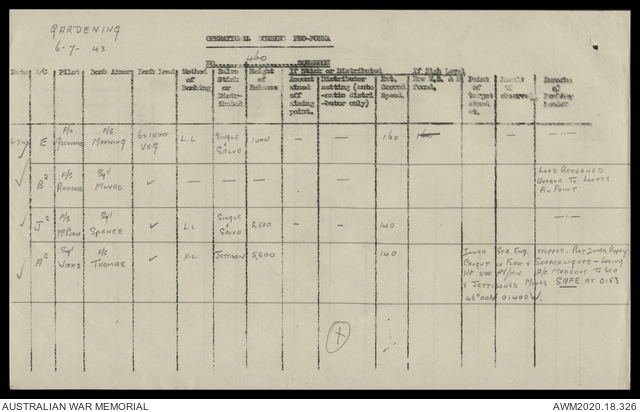 GARDENING
6-7-43
OPERATIONAL BOMBING PRO-FORMA
NO. 460 SQUADRON
Date A/C Pilot Bomb Aimer Bomb Load Method of Bombing Salvo Stick or Distributed Height of Release If Stick or Distributed If High Level Point of target aimed at. Result if observed. Remarks of Bombing Leader
Amount aimed off aiming point. Distributor setting (auto-matic distributor only) Est. Ground Speed. found.
E P/O F/S MANNING 6x1500 VEG L.L SINGLE SALVO 1000 — — 160 160 —
B² F/S Sgt MUNRO ✓ — — — — — — LOAD RETURNED
UNABLE TO LOCATE
PIN POINT
J² F/S Sgt SPENCE ✓ L.L SINGLE SALVO 2,500 — 140 —
A² Sgt F/S THOMAS ✓ H.L JETTISON 140
INNER STB. ENG. STOPPED. PORT INNER
CAUGHT IN FLAK & SEARCHLIGHTS - LOSING
HT A/C MADE OUT TO SEA
& JETTISONED MINES SAFE AT 0153
46°00N 01400W.
AUSTRALIAN WAR MEMORIAL
AWM2020.18.326